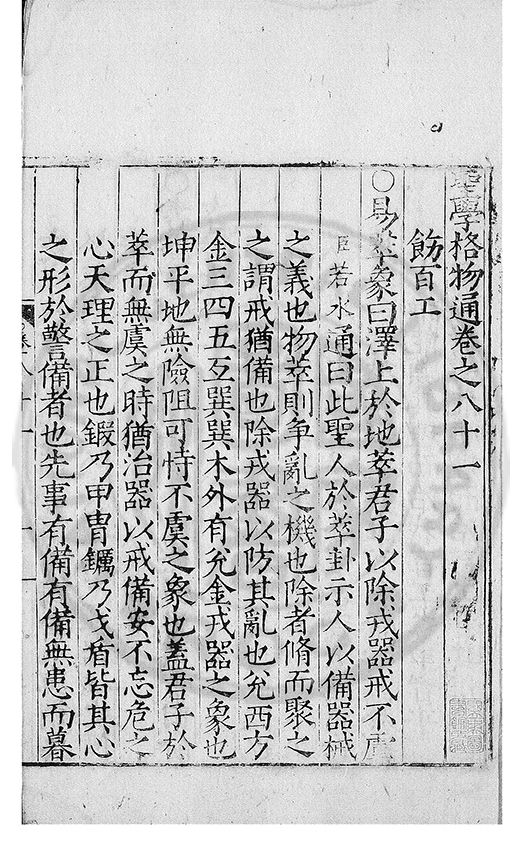 聖學格物通卷之八十一
飭百工
○易萃象曰澤上於地萃君子以除戎器戒不虞
臣若水通曰此聖人於萃卦示人以備器械
之義也物萃則爭亂之機也除者脩而聚之
之謂戒猶備也除戎器以防其亂也兌西方
金三四五互巽巽木外有兌金戎器之象也
坤平地無險阻可恃不虞之象也蓋君子於
萃而無虞之時猶治器以戒備安不忘危之
心天理之正也鍜乃甲冑鑴乃戈盾皆其心
之形於警備者也先事有備有備無患而暮
卷八十一